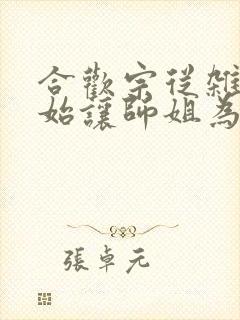 合歡宗從雜
始讓師姐為
張卓元